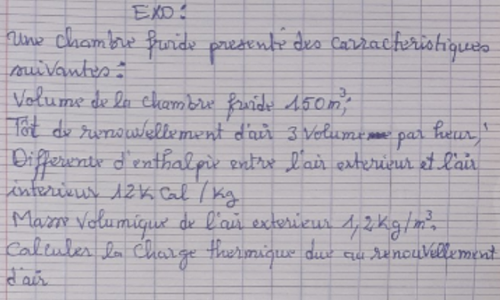 EXO:
Une chambre froide presente des carracteristiques
suivantes:
Volume de la chambre froide 150m³;
Tôt de renouvellement d'air 3 Volume par heur;
Difference d'enthalpie entre l'air exterieur et l'air
interieur 12K Cal / Kg
Masse Volumique de l'air exterieur 1,2Kg/m³.
Calculer la Charge thermique due au renouvellement
d'air